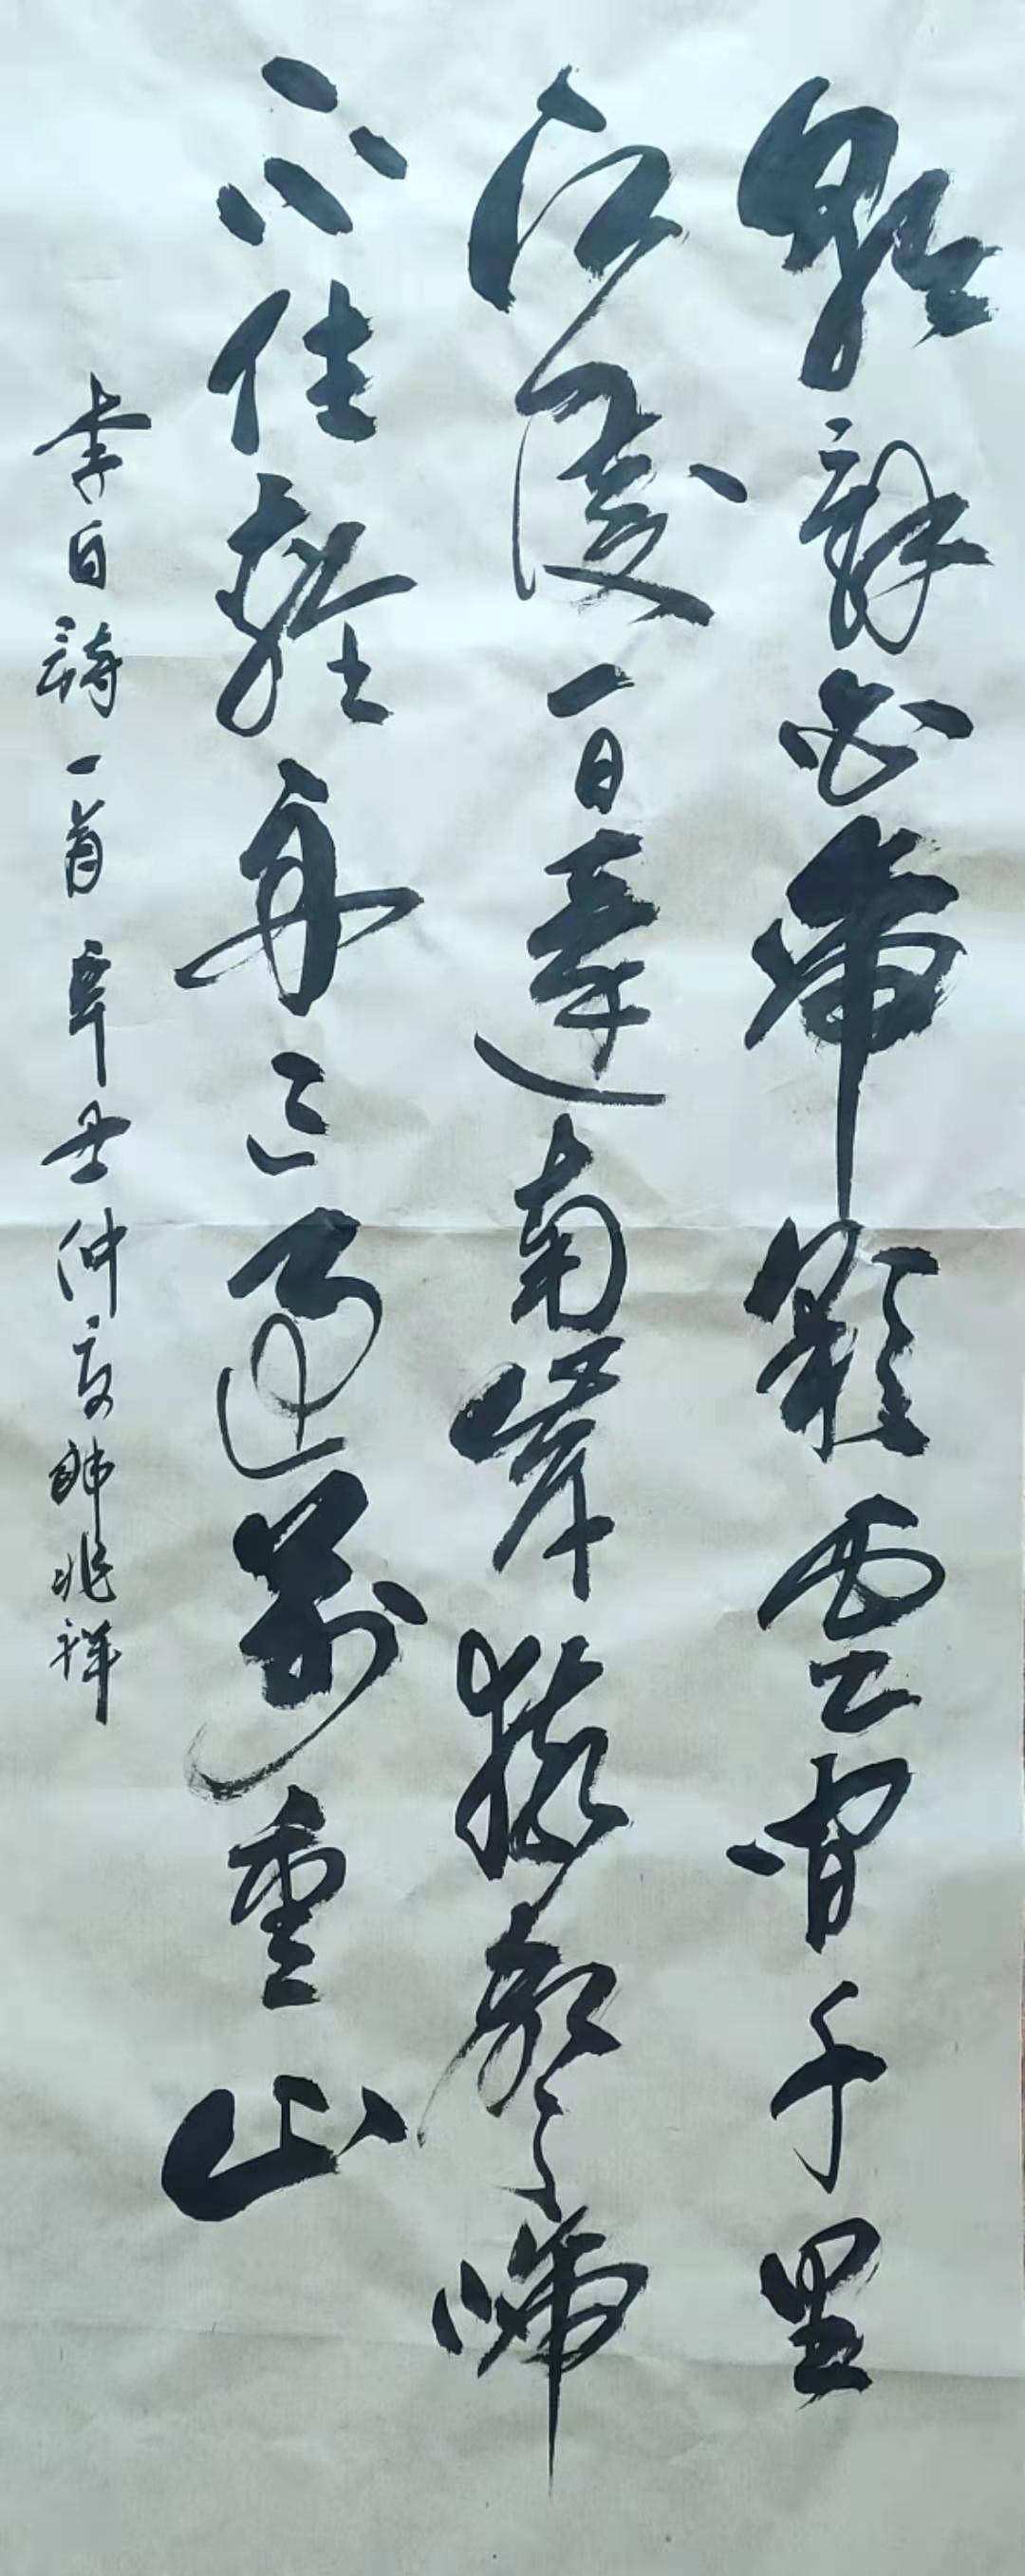 朝辭白帝雲間千里
江陵一日達南岸猿聲啼
不住輕舟已過萬重山
李白詩一首辛丑仲夏帥兆祥